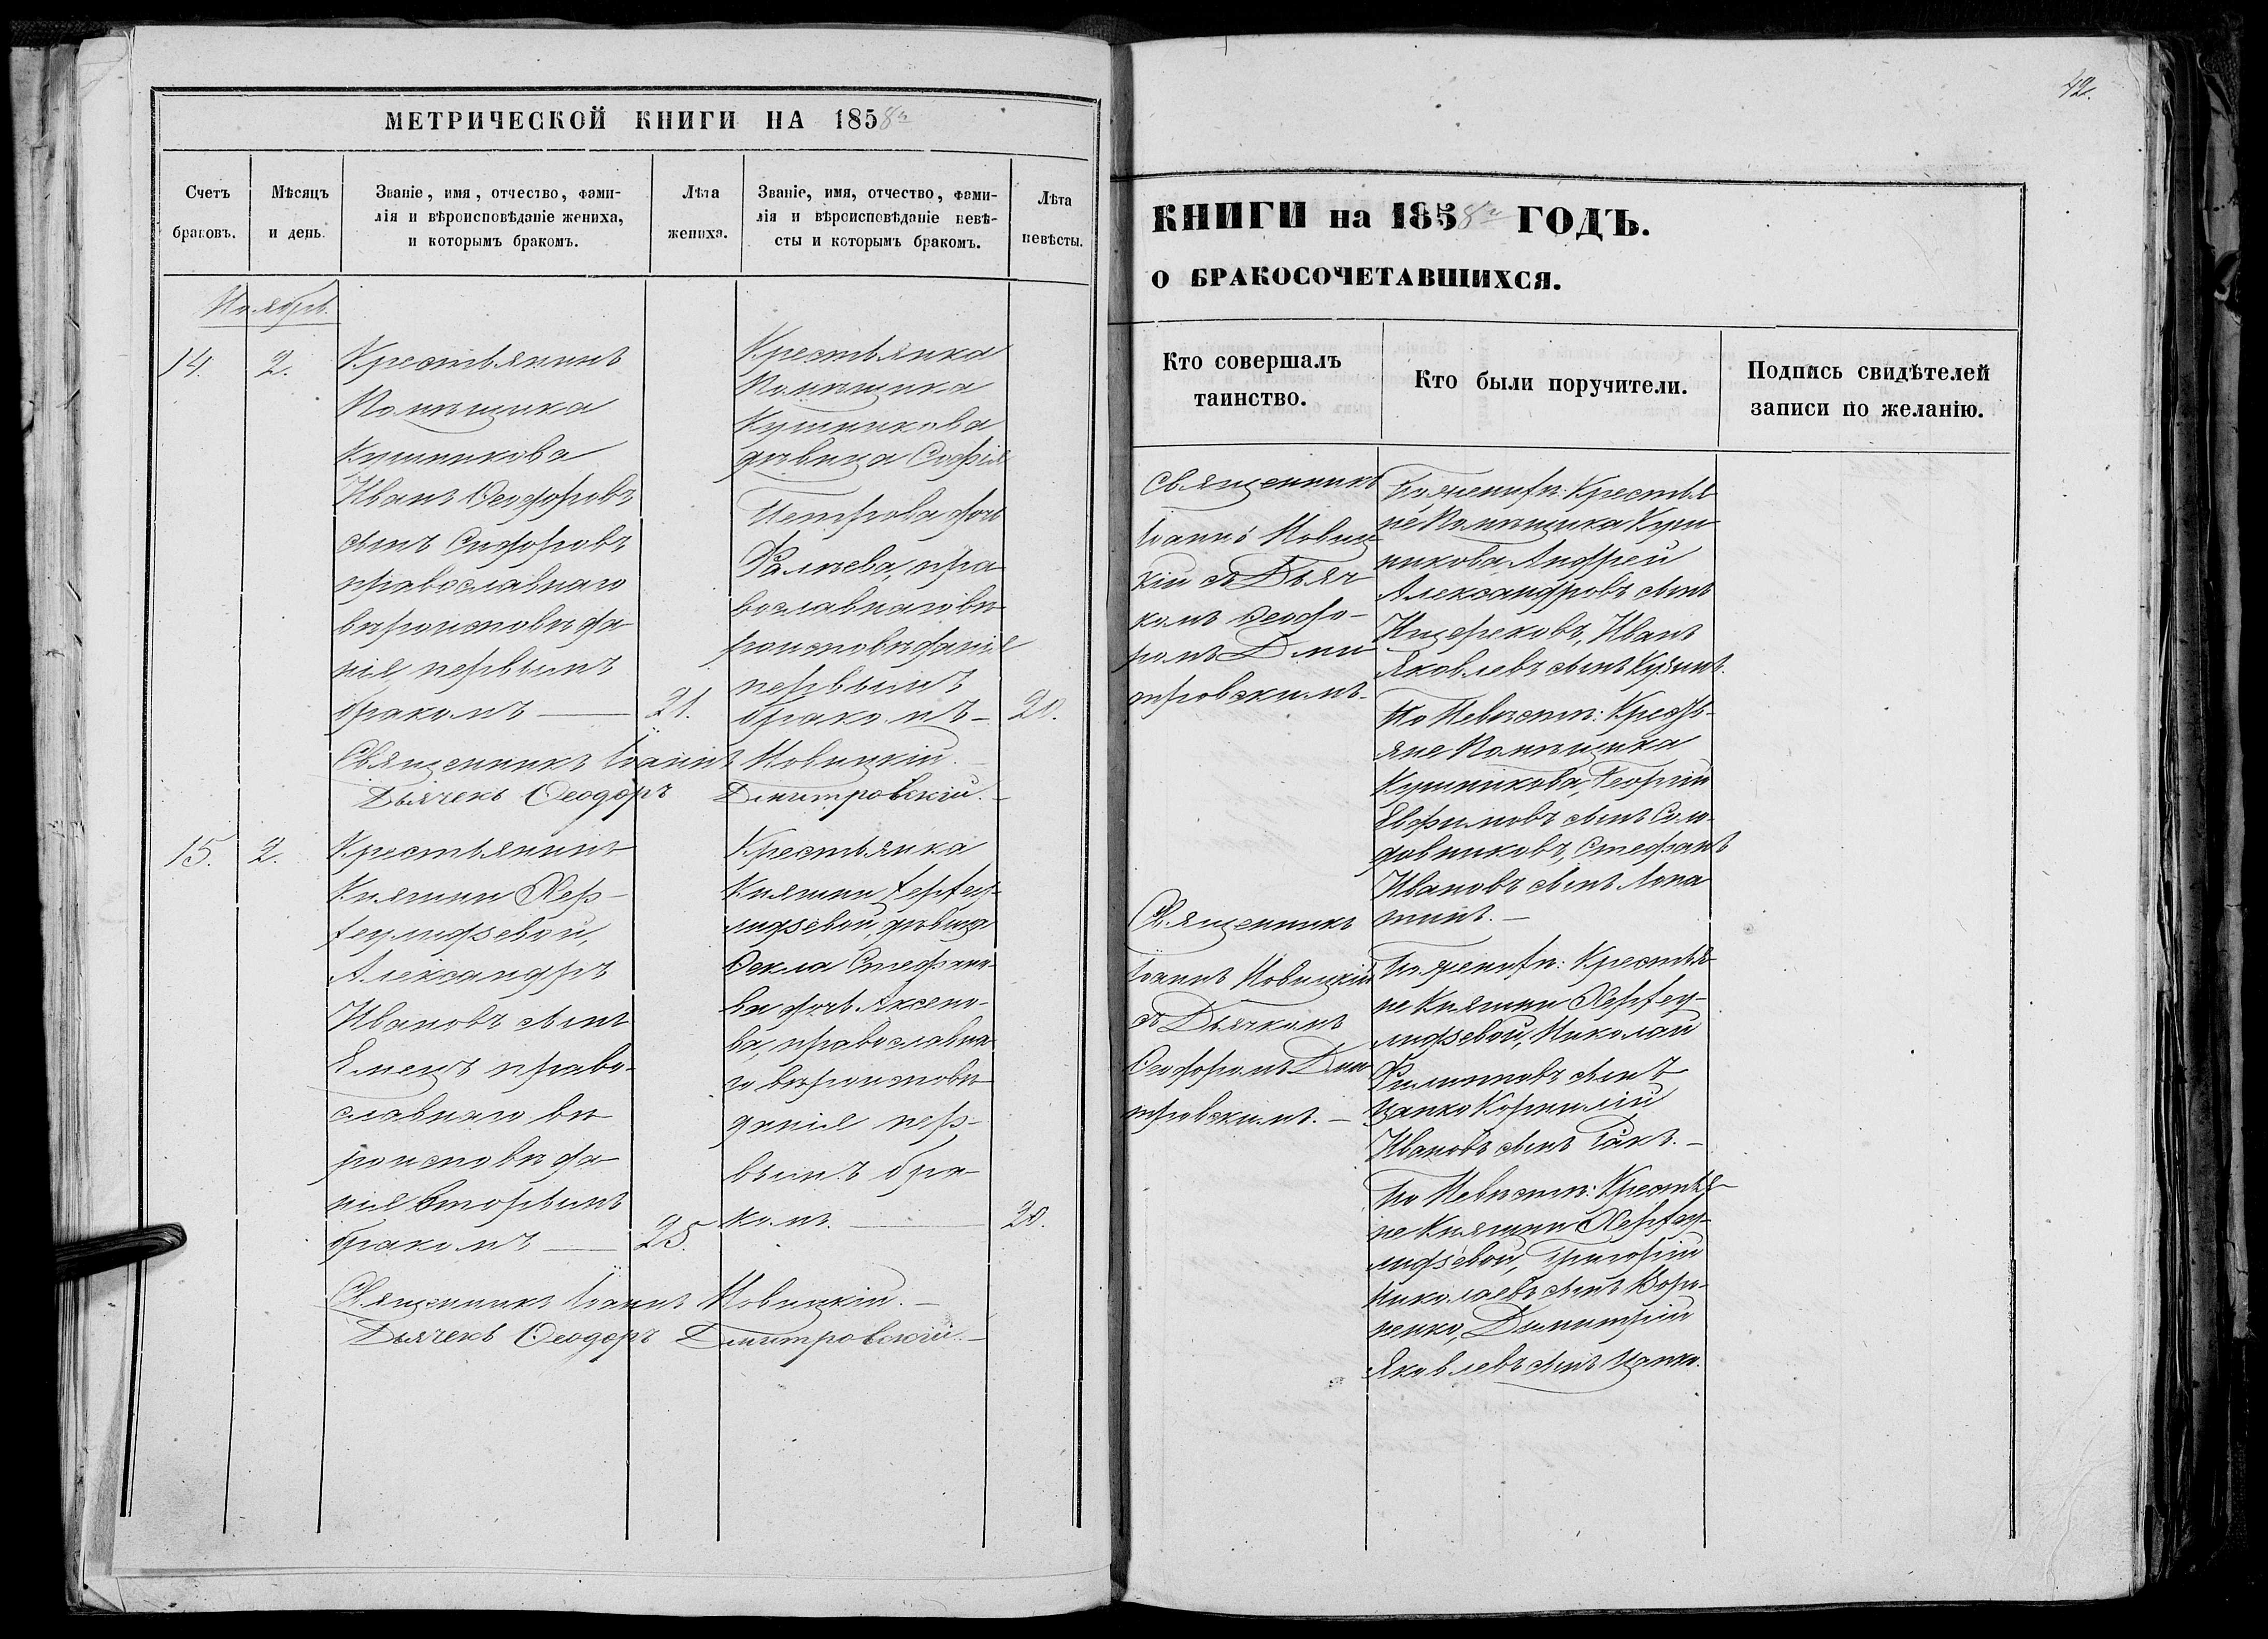 МЕТРИЧЕСКОЙ КНИГИ НА 1858й
Счетъ
браковъ.
Мѣсяцъ
и день.
Званіе, имя, отчество, фами-
лія и вѣроисповѣданіе жениха,
и которымъ бракомъ.
Лѣта
жениха.
Званіе, имя, отчество, фами-
лія и вѣроисповѣданіе невѣ-
сты и которымъ бракомъ.
Лѣта
невѣсты.
Ноябрь.
14.
2.
Крестьянинъ
Помѣщика
Кушникова
Иванъ Ѳеодоровъ
сынъ Сидоровъ
православнаго
вѣроисповѣда-
нія первымъ
бракомъ —
21.
Крестьянка
Помѣщика
Кушникова
дѣвица Софія
Петрова дочь
Фалѣева, пра-
вославнаго вѣ-
роисповѣданія
первымъ
бракомъ —
20.
Священникъ Іоаннъ Новицкій. —
Дьячекъ Ѳеодоръ Дмитровскій. —
15.
2.
Крестьянинъ
Княгини Хер-
хеулидзевой,
Александръ
Ивановъ сынъ
Емецъ право-
славнаго вѣ-
роисповѣда-
нія вторымъ
бракомъ —
25.
Крестьянка
Княгини Херхеу-
лидзевой, дѣвица
Ѳекла Стефано-
ва дочь Аксено-
ва, православна-
го вѣроисповѣ-
данія пер-
вымъ бра-
комъ. —
20.
Священникъ Іоаннъ Новицкій. —
Дьячекъ Ѳеодоръ Дмитровскій. —
42.
КНИГИ на 1858й ГОДЪ.
О БРАКОСОЧЕТАВШИХСЯ.
Кто совершалъ
таинство.
Кто были поручители.
Подпись свидѣтелей
записи по желанію.
Священникъ
Іоаннъ Новиц-
кій съ Дьяч-
комъ Ѳеодо-
ромъ Дми-
тровскимъ.
По женихѣ: Крестья-
не Помѣщика Куш-
никова Андрей
Александровъ сынъ
Ищерековъ, Иванъ
Яковлевъ сынъ Кузинъ.
По Невѣстѣ: Кресть-
яне Помѣщика
Кушникова, Георгій
Евфимовъ сынъ Соло-
довниковъ, Стефанъ
Ивановъ сынъ Лопа-
тинъ. —
Священникъ
Іоаннъ Новицкій
съ Дьячкомъ
Ѳеодоромъ Дми-
тровскимъ. —
По женихѣ: Крестья-
не Княгини Херхеу-
лидзевой, Николай
Филиповъ сынъ
Цапко Корнилій
Ивановъ сынъ Ракъ. —
По Невѣстѣ: Крестья-
не Княгини Херхеу-
лидзевой, Григорій
Николаевъ сынъ Воро-
ненко, Димитрій
Яковлевъ сынъ Цапко.